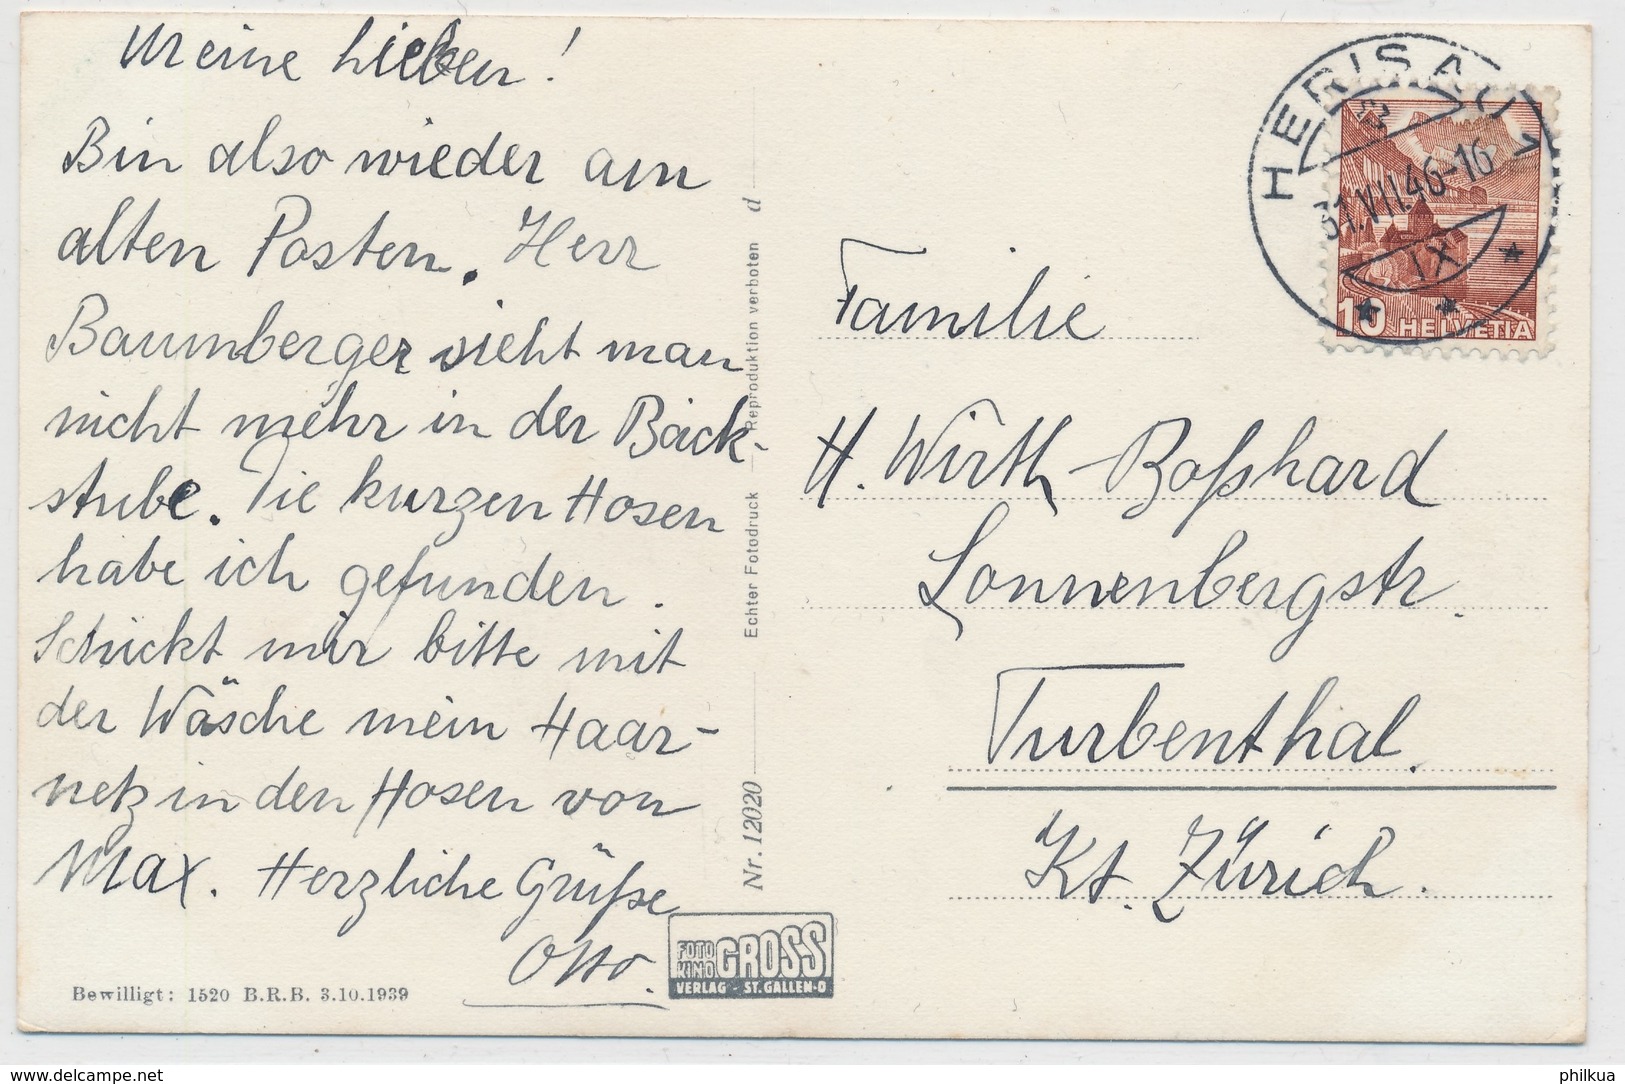 Meine Lieben!
Bin also wieder am
alten Posten. Herr
Baumberger sieht man
nicht mehr in der Back-
stube. Die kurzen Hosen
habe ich gefunden.
Schickt mir bitte mit
der Wäsche mein Haar-
netz in den Hosen von
Max. Herzliche Grüße
Otto.
Bewilligt: 1520 B.R.B. 3.10.1939
Nr. 12020
Echter Fotodruck — Reproduktion verboten
d
FOTO KINO GROSS
VERLAG - ST. GALLEN-O
HERISAU
31.VII.46-16
IX
10 HELVETIA
Familie
H. Wirth-Boßhard
Sonnenbergstr.
Turbenthal.
Kt. Zürich.
www.delcampe.net
philkua